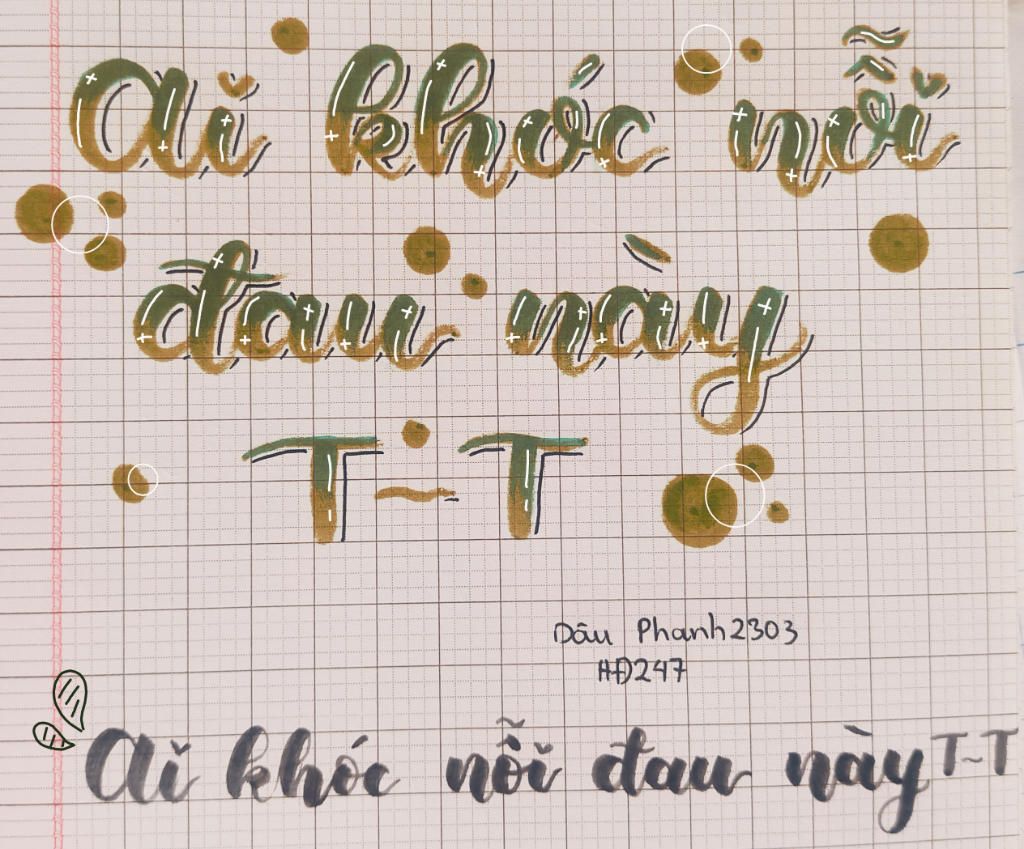 Ai khóc nỗi
đau này
T~T
Dâu Phanh2303
HĐ247
Ai khóc nỗi đau này T~T